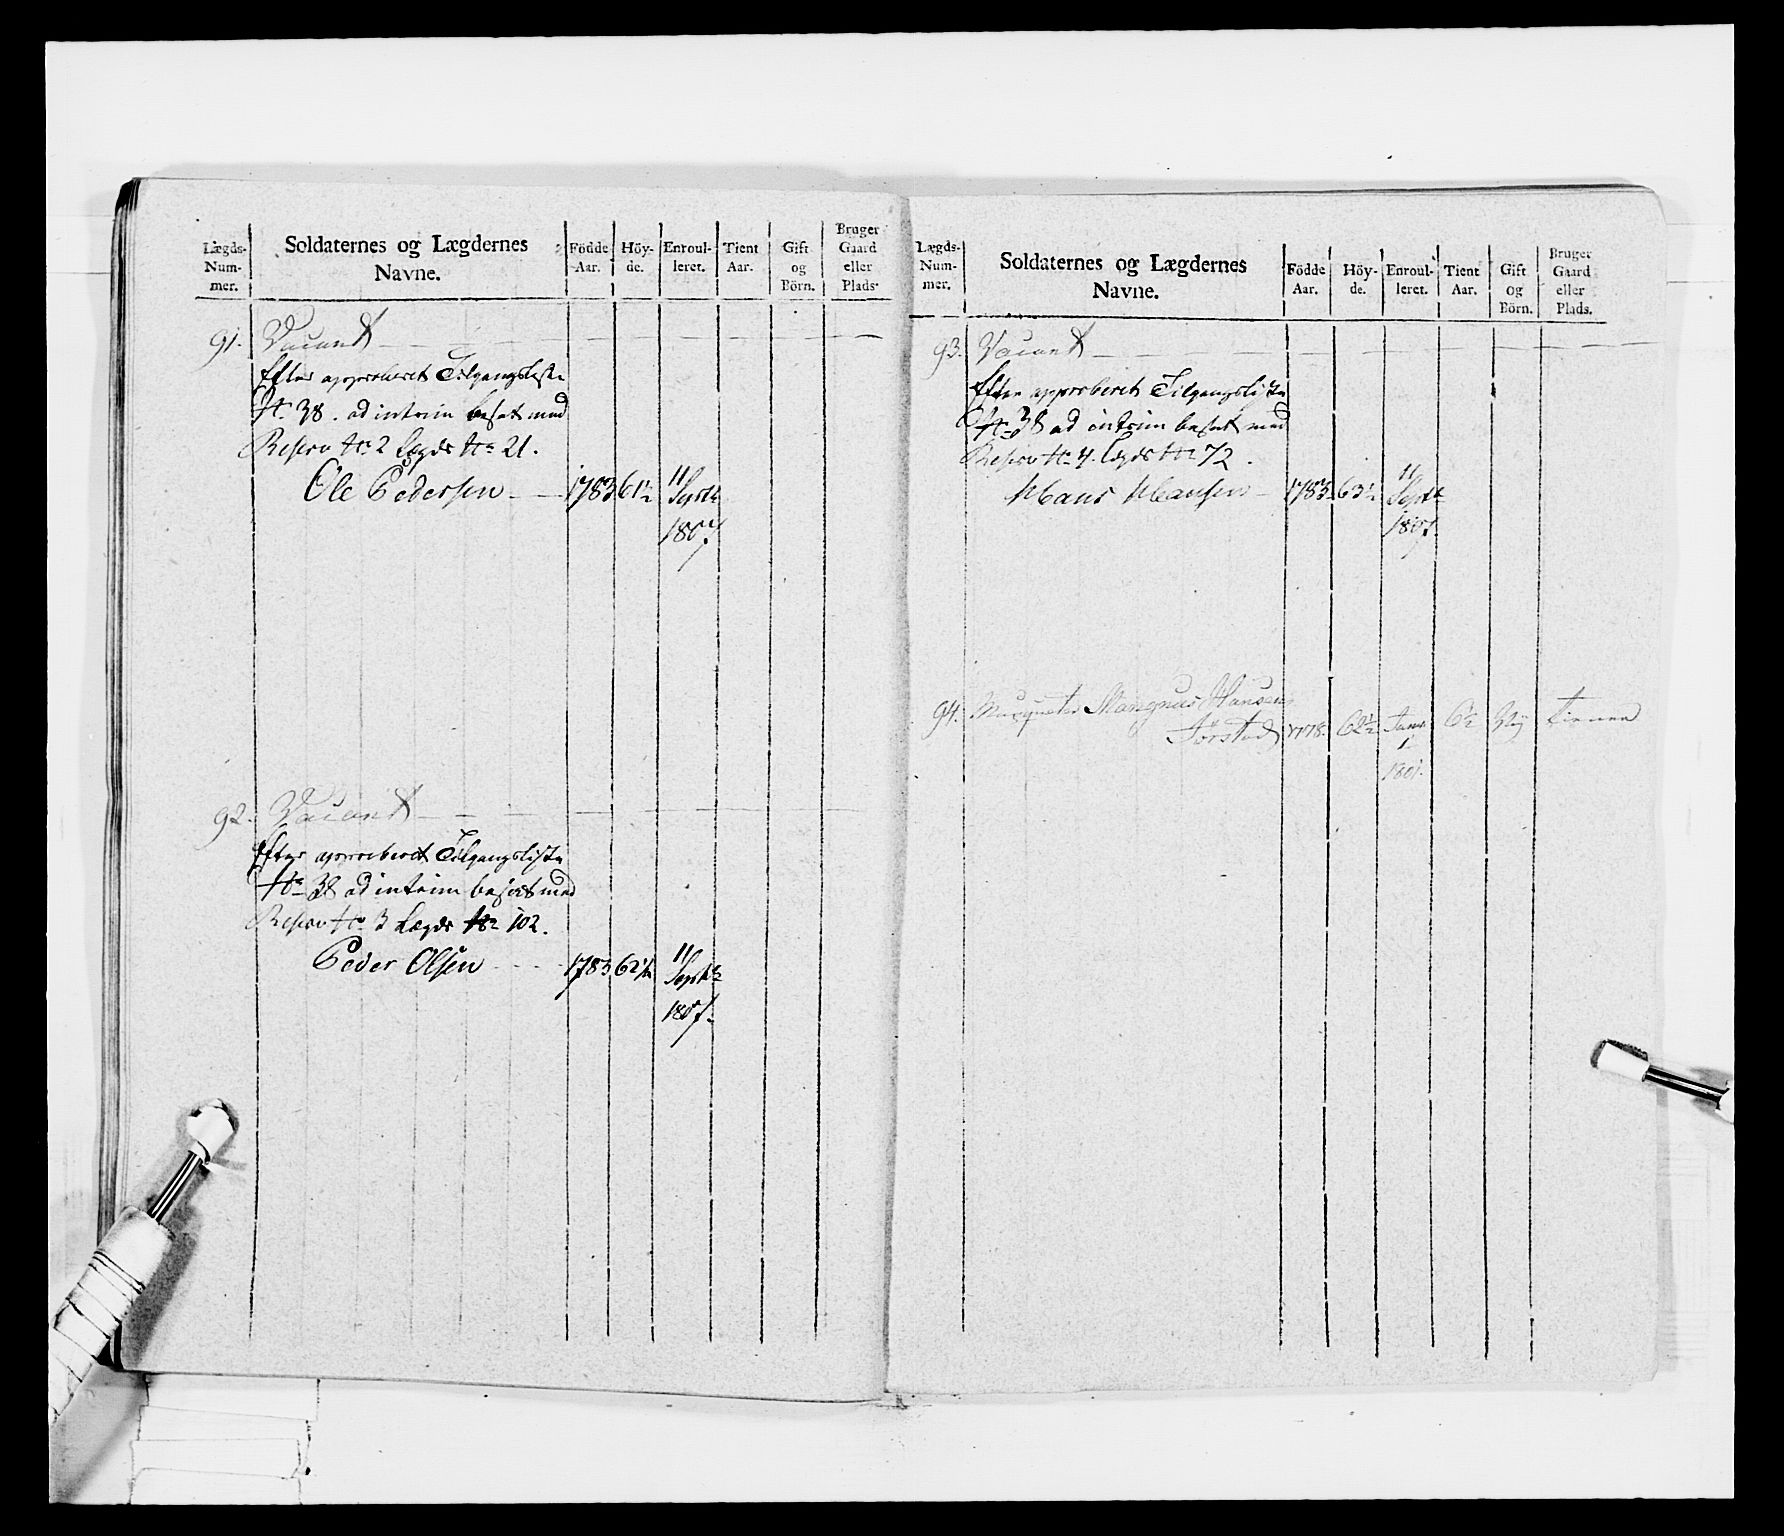 Lægds-
Num-
mer.
Soldaternes og Lægdernes
Navne.
Födde
Aar.
Höy-
de.
Enroul-
leret.
Tient
Aar.
Gift
og
Börn.
Bruger
Gaard
eller
Plads.
91. Vacant
Efter approberet Tilgangsliste
No 38. ad interim besat med
Reserv No 2 Lægds No 21.
Ole Pedersen 1783 61½ 11
Septb
1807.
92. Vacant
Efter approberet Tilgangsliste
No 38 ad interim besat med
Reserv No 3 Lægds No 102.
Peder Olsen 1783 62½ 11
Septb
1807.
Lægds-
Num-
mer.
Soldaternes og Lægdernes
Navne.
Födde
Aar.
Höy-
de.
Enroul-
leret.
Tient
Aar.
Gift
og
Börn.
Bruger
Gaard
eller
Plads.
93. Vacant
Efter approberet Tilgangsliste
No 38 ad interim besat med
Reserv No 4. Lægds No 72.
Hans Hansen 1783 63½ 11
Septb
1807.
94. Musqueter Mangnus Hansen
Torstad 1778. 62½ Janr 6½ Nej tiener
1
1801.